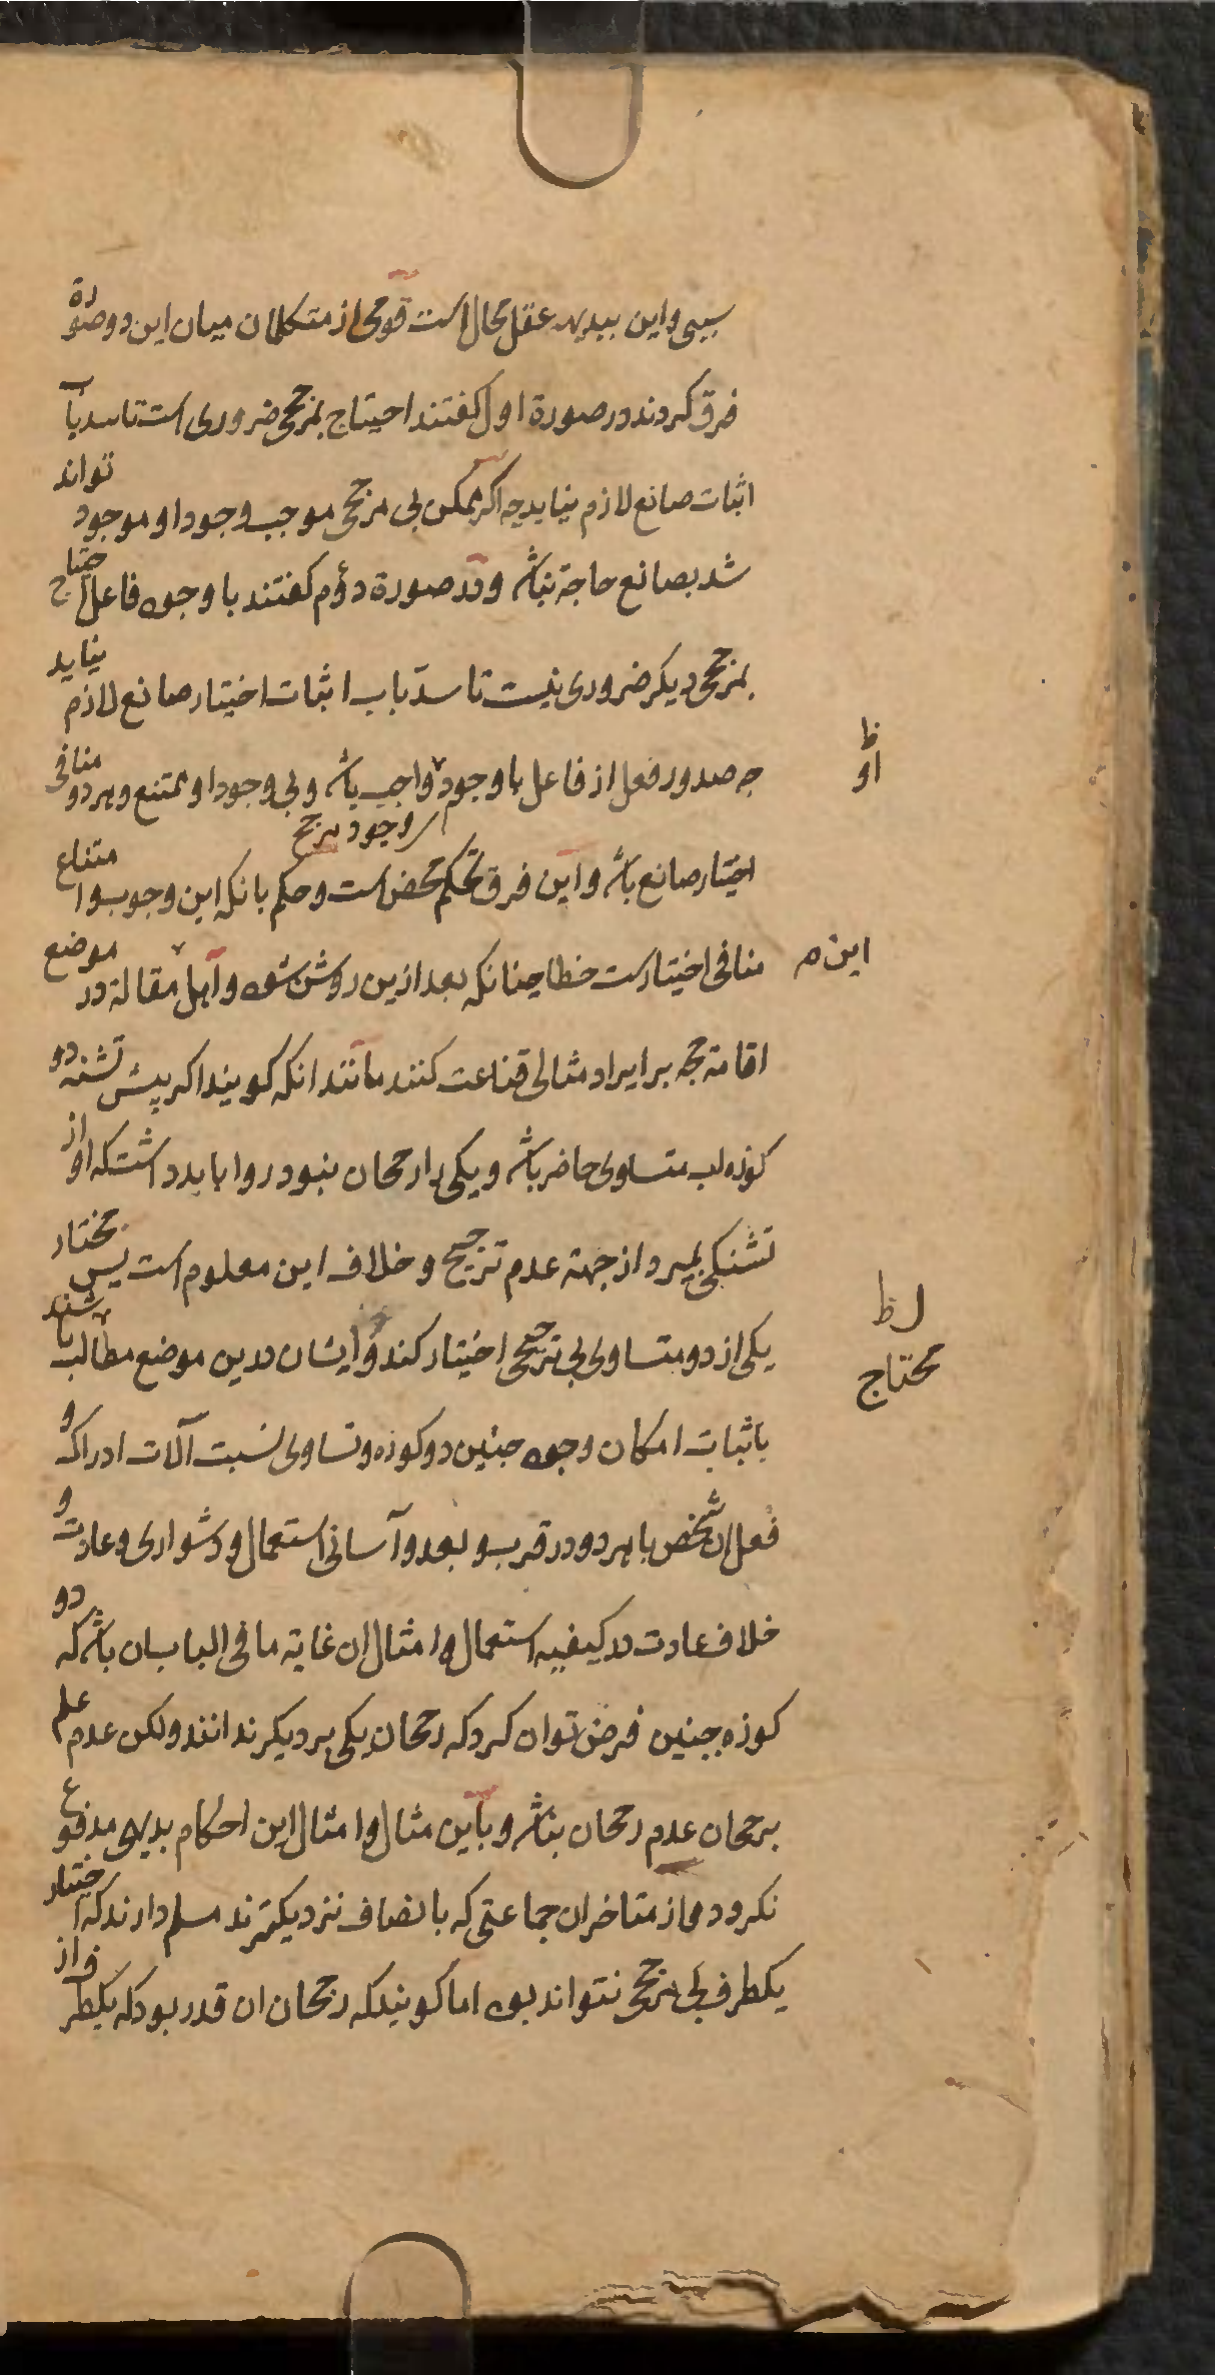 سببی و این ببدیهه عقل محال است قومی از متکلمان میان این دو صورة
فرق کردند در صورة اول کفتند احتیاج بمرجحی ضروری است تا سد باب
اثبات صانع لازم نیاید چه اکر ممکن بی مرجحی موجب وجود او موجود تواند
شد بصانع حاجة نباشد و در صورة دؤم کفتند با وجود فاعل احتیاج
بمرجحی دیکر ضروری نیست تا سدّ باب اثبات اختیار صانع لازم نیاید
چه صدور فعل از فاعل با وجود واجب باشد و بی وجود او ممتنع و هر دو منافی
وجود مرجح
اختیار صانع باشد و این فرق تحکم محض است و حکم بانکه این وجوب و امتناع
منافی اختیارست خطا چنانکه بعد ازین روشن شود و اهل مقالة در موضع
اقامة حجه بر ایراد مثالی قناعت کنند مانند انکه کویند اکر پیش تشنه دو
کوزه اب متساوی حاضر باشد و یکی را رجحان نبود روا باید داشت که او از
تشنکی بمیرد از جهة عدم ترجیح و خلاف این معلوم است پس مختار
یکی از دو متساوی بی ترجیحی اختیار کند و ایشان درین موضع مطالب باشند
باثبات امکان وجود چنین دو کوزه و تساوی نسبت آلات ادراک و
فعل ان شخص با هر دو در قرب و بعد و آسانی استعمال و دشواری و عادت و
خلاف عادت در کیفیه استعمال و امثال ان غایة ما فی الباب ان باشد که دو
کوزه چنین فرض توان کرد که رجحان یکی بر دیکر ندانند ولکن عدم علم
برجحان عدم رجحان نباشد و باین مثال و امثال این احکام بدیهی مدفوع
نکرود و از متاخران جماعتی که بانصاف نزدیکترند مسلم دارند که اختیار
یکطرف بی مرجحی نتواند بود اما کویند که رجحان ان قدر بود که یکطرف از
ظ
او
این ه
ل ظ
محتاج